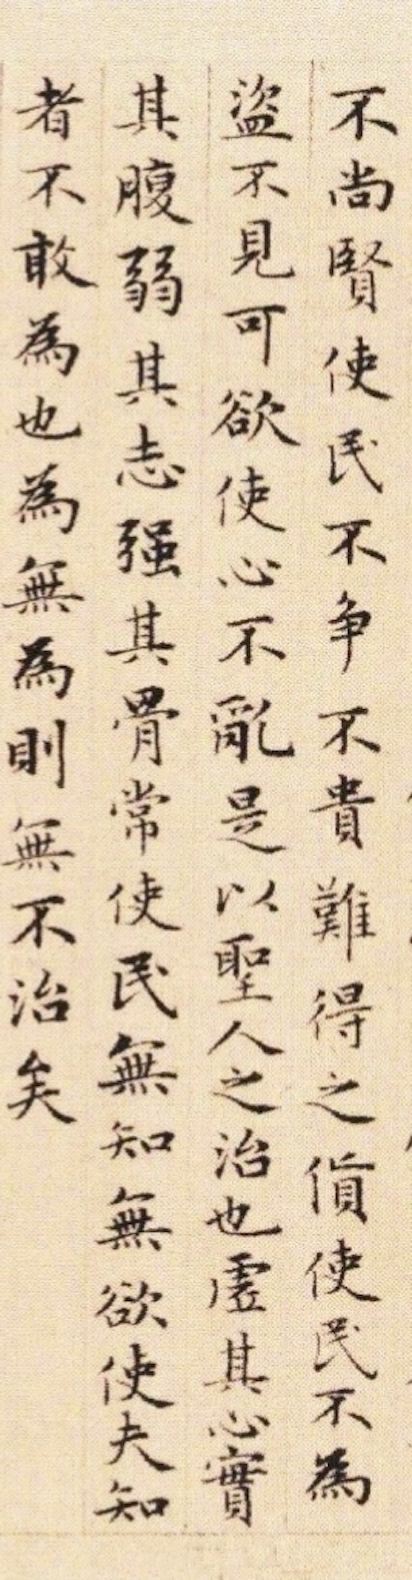 不尚賢使民不爭不貴難得之貨使民不為
盜不見可欲使心不亂是以聖人之治也虛其心實
其腹弱其志强其骨常使民無知無欲使夫知
者不敢為也為無為則無不治矣